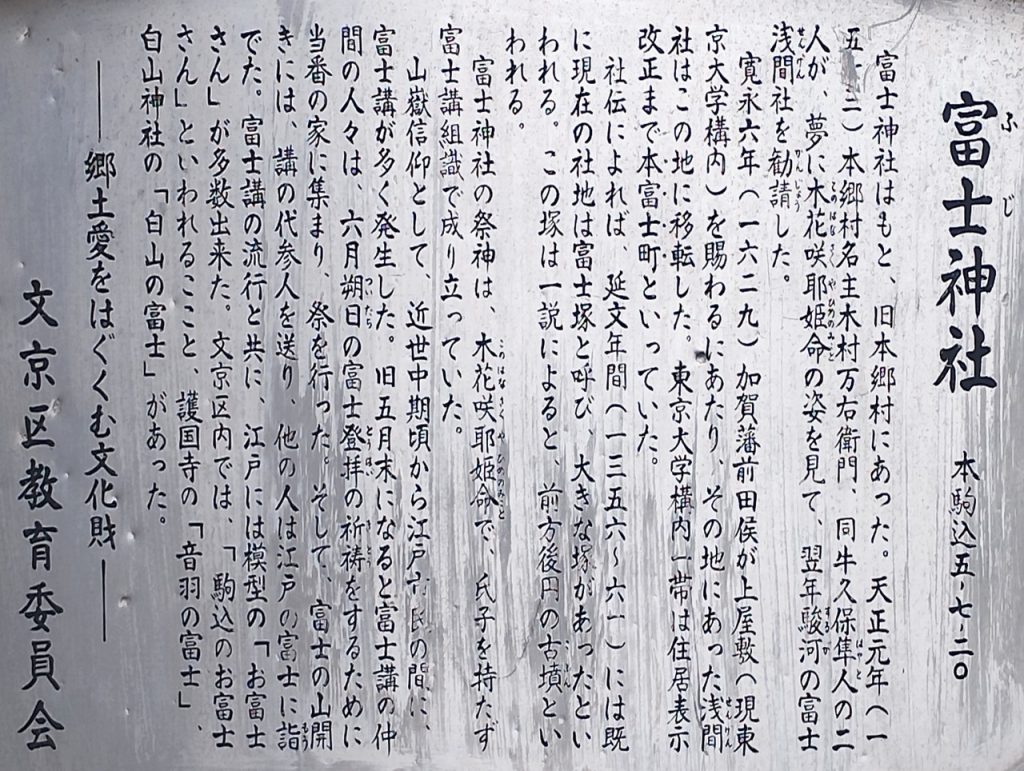 富士神社　本駒込五-七-二〇
富士神社はもと、旧本郷村にあった。天正元年（一
五二）本郷村名主木村万右衛門、同牛久保隼人の二
人が、夢に木花咲耶姫命の姿を見て、翌年駿河の富士
浅間社を勧請した。
寛永六年（一六二九）加賀藩前田侯が上屋敷（現東
京大学構内）を賜わるにあたり、その地にあった浅間
社はこの地に移転した。東京大学構内一帯は住居表示
改正まで本富士町といっていた。
社伝によれば、延文年間（一三五六〜六一）には既
に現在の社地は富士塚と呼び、大きな塚があったとい
われる。この塚は一説によると、前方後円の古墳とい
われる。
富士神社の祭神は、木花咲耶姫命で、氏子を持たず
富士講組識で成り立っていた。
山嶽信仰として、近世中期頃から江戸市民の間に、
富士講が多く発生した。旧五月末になると富士講の仲
間の人々は、六月朔日の富士登拝の祈祷をするために
当番の家に集まり、祭を行った。そして、富士の山開
きには、講の代参人を送り 他の人は江戸の富士に詣
でた。富士講の流行と共に、江戸には模型の「お富士
さん」が多数出来た。文京区内では、「駒込のお富士
さん」といわれるここと、護国寺の「音羽の富士」、
白山神社の「白山の富士」があった。
――郷土愛をはぐくむ文化財――
文京区教育委員会